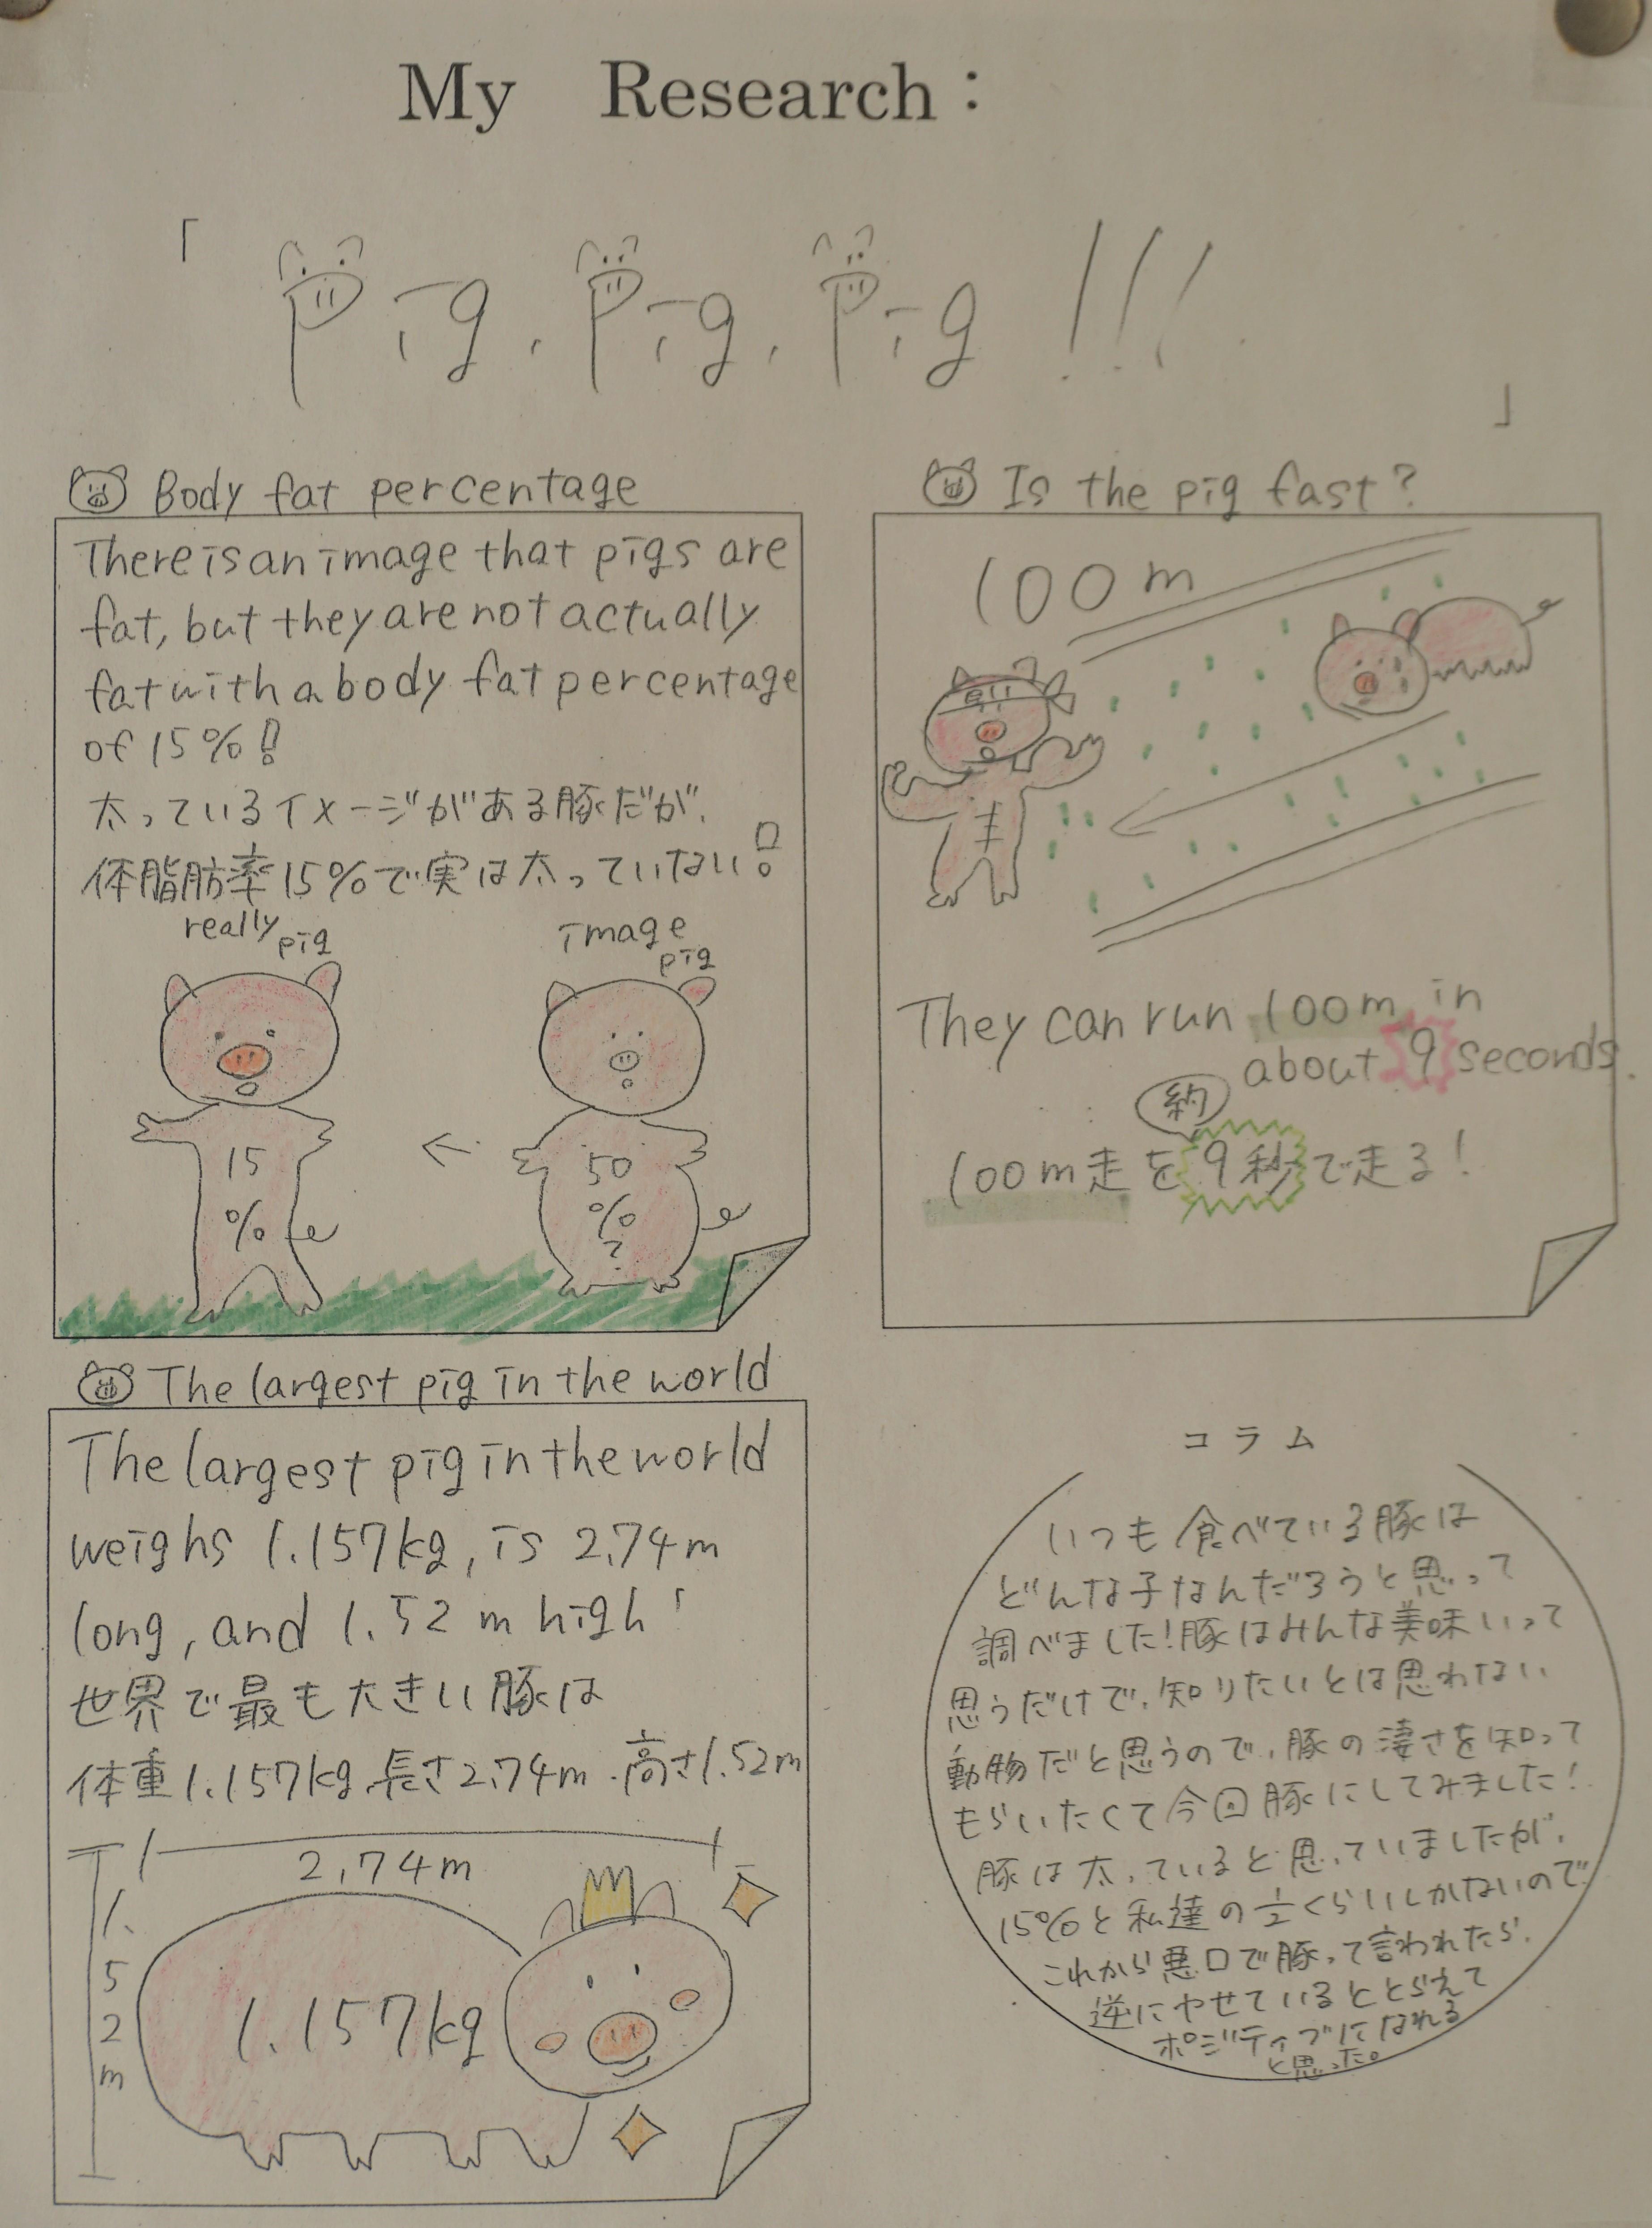 My Research:
「Pig, Pig, Pig!!!」
Body fat percentage
There is an image that pigs are
fat, but they are not actually
fat with a body fat percentage
of 15%!!
太っているイメージがある豚だが、
体脂肪率15%で実は太っていない!!
really pig
image pig
15
%
←
50
%
?
Is the pig fast?
100m
They can run 100m in
about 9 seconds.
約
100m走を9秒で走る!
The largest pig in the world
The largest pig in the world
weighs 1.157kg, is 2.74m
long, and 1.52m high!
世界で最も大きい豚は
体重1.157kg.長さ2.74m.高さ1.52m
2.74m
1.52m
1.157kg
コラム
いつも食べている豚は
どんな子なんだろうと思って
調べました!豚はみんな美味いって
思うだけで、知りたいとは思わない
動物だと思うので、豚の凄さを知って
もらいたくて今回豚にしてみました!
豚は太っていると思っていましたが、
15%と私達の1/2くらいしかないので
これから悪口で豚って言われたら、
逆にやせているととらえて
ポジティブになれる
と思った。